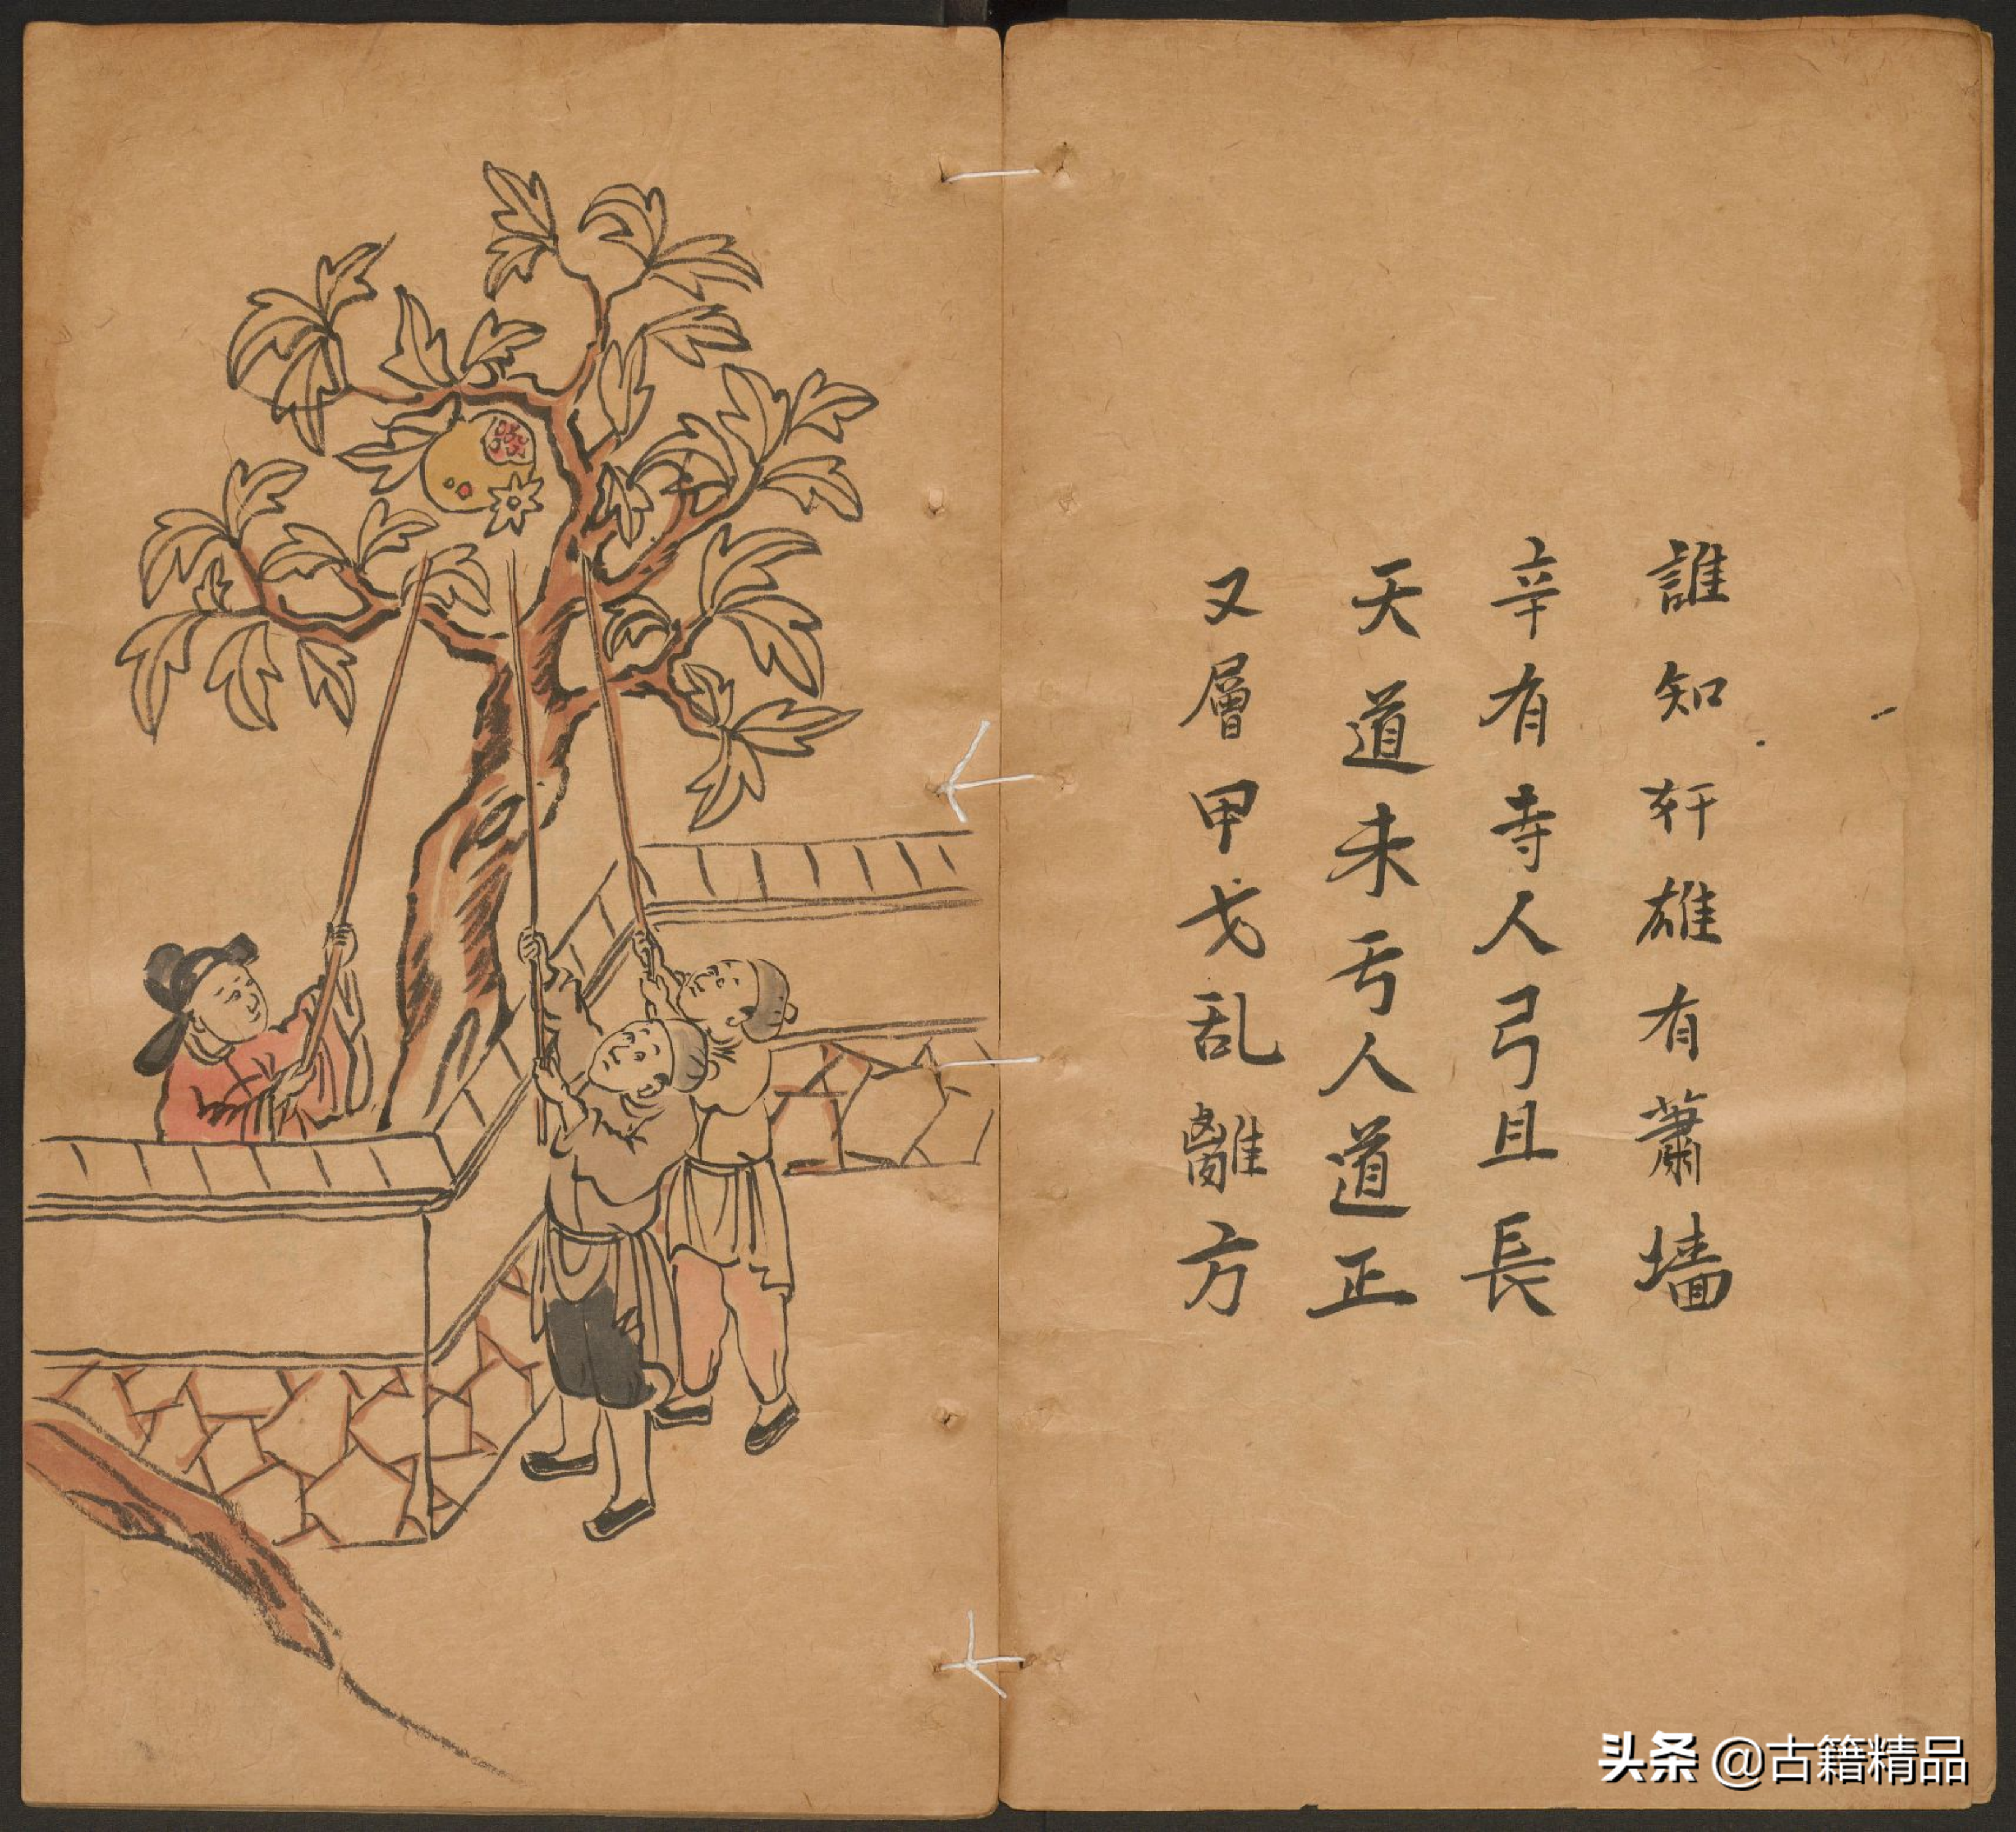 誰知奸雄有蕭墻
辛有寺人弓且長
天道未亏人道正
又層甲戈乱離方
头条 @古籍精品